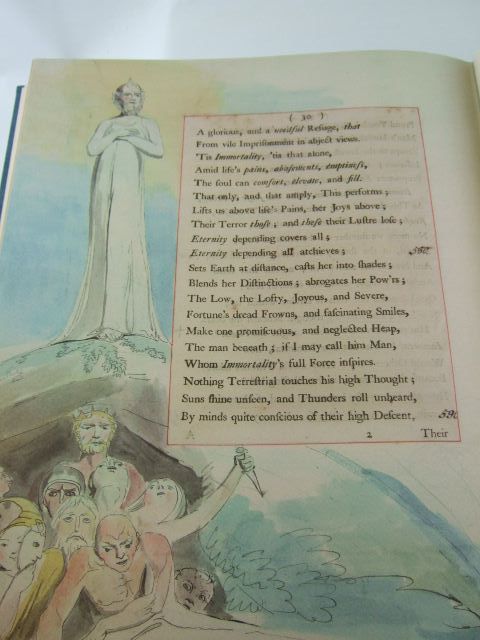 ( 30 )
A glorious, and a needful Refuge, that
From vile Imprisonment in abject views.
'Tis Immortality, 'tis that alone,
Amid life's pains, abasements, emptiness,
The soul can comfort, elevate, and fill.
That only, and that amply, This performs;
Lifts us above life's Pains, her Joys above;
Their Terror those; and these their Lustre lose;
Eternity depending covers all;
Eternity depending all atchieves;
Sets Earth at distance, casts her into shades;
Blends her Distinctions; abrogates her Pow'rs;
The Low, the Lofty, Joyous, and Severe,
Fortune's dread Frowns, and fascinating Smiles,
Make one promiscuous, and neglected Heap,
The man beneath; if I may call him Man,
Whom Immortality's full Force inspires.
Nothing Terrestrial touches his high Thought;
Suns shine unseen, and Thunders roll unheard,
By minds quite conscious of their high Descent,
2 Their